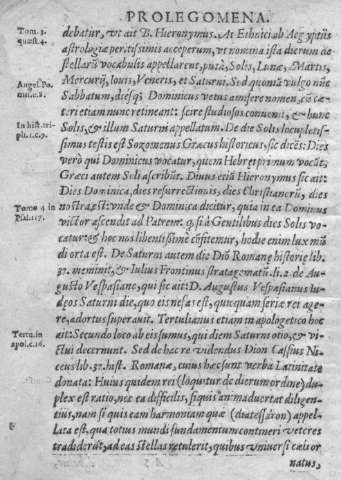 PROLEGOMENA.
Tom. 3.
quæst. 4.
debatur, vt ait B. Hieronymus. At Ethnici ab Aegyptiis
astrologiæ peritissimis acceperunt, vt nomina ista dierum de
stellarũ vocabulis appellarent, putà, Solis, Lunæ, Martis,
Mercurij, Iouis, Veneris, et Saturni. Sed quoniã vulgo nũc
Sabbatum, diesq; Dominicus vetus amisere nomen, cũ cæ
teri etiam nunc retineant: scire studiosos conuenit, & hunc
In hist. tri-
Solis, & illum Saturni appellatum. De die Solis locupletis-
simus testis est Sozomenus Græcus historicus, sic dicẽs: Dies
verò qui Dominicus vocatur, quem Hebrei primum vocãt,
Græci autem Soli ascribũt. Diuus etiã Hieronymus sic ait:
Dies Dominica, dies resurrectionis, dies Christianorũ, dies
Tomo 4 in
nostra est: vnde & Dominica dicitur, quia in ea Dominus
victor ascendit ad Patrem. q̃ si à Gentilibus dies Solis vo
catur: & hoc nos libentissimè cõfitemur, hodie enim lux mũ
di orta est. De Saturni autem die Diõ Romanę historię lib.
37. meminit, & Iulius Frontinus stratagematũ li. 2. de Au-
gusto Vespasiano, qui sic ait: D. Augustus Vespasianus Iu
dæos Saturni die, quo eis nefas est, quicquam seriæ rei age-
re, adortus superauit. Tertulianus etiam in apologetico hoc
Tertu. in
apol. c. 16.
ait: Secundo loco ab eis sumus, qui diem Saturni otio, & vi
ctui decernunt. Sed de hac re videndus Dion Cassius Ni-
ceus lib. 37. hist. Romanæ, cuius hæc sunt verba Latinitate
donata: Huius quidem rei (loquitur de dierum ordine) du-
plex est ratio, nec ea difficilis, siquis animaduertat diligen-
tius, nam si quis eam harmoniam quæ (diatessáron) appel-
lata est, qua totius mundi fundamentum contineri veteres
tradiderũt, ad eas stellas retulerit, quibus vniuersi cæli or
natus,